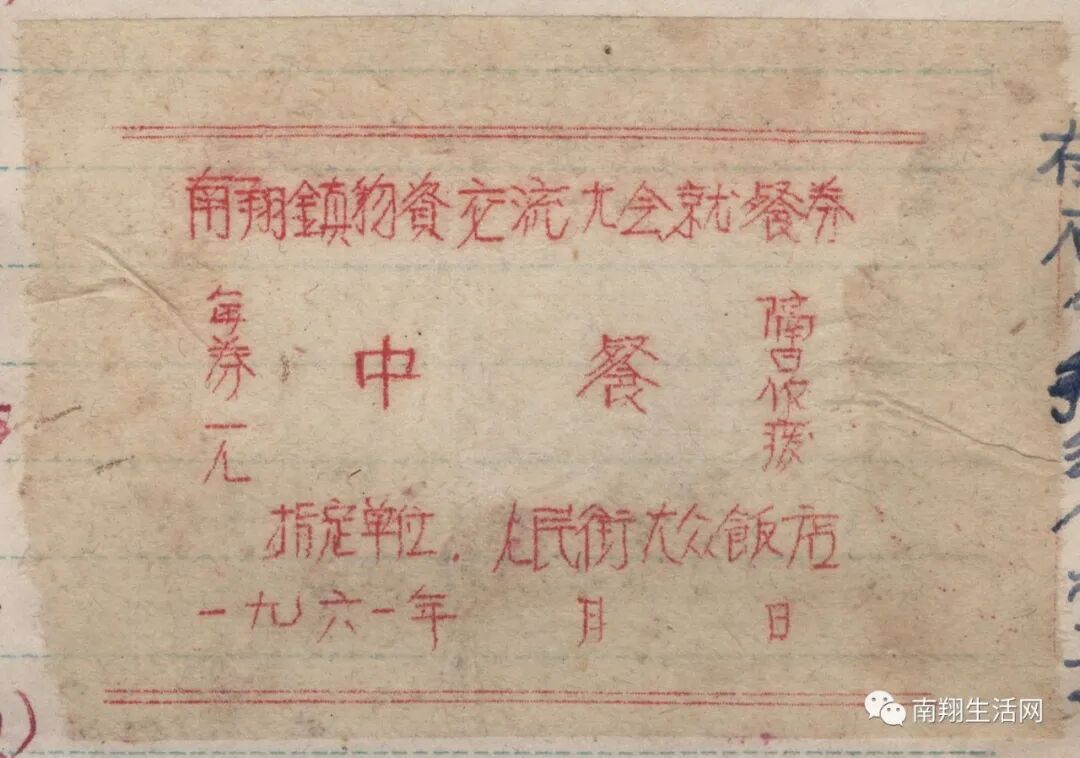 南翔鎮物資交流大会就餐券
每券一人
中餐
隔日作废
指定单位．人民街大众飯店
一九六一年 月 日
南翔生活网